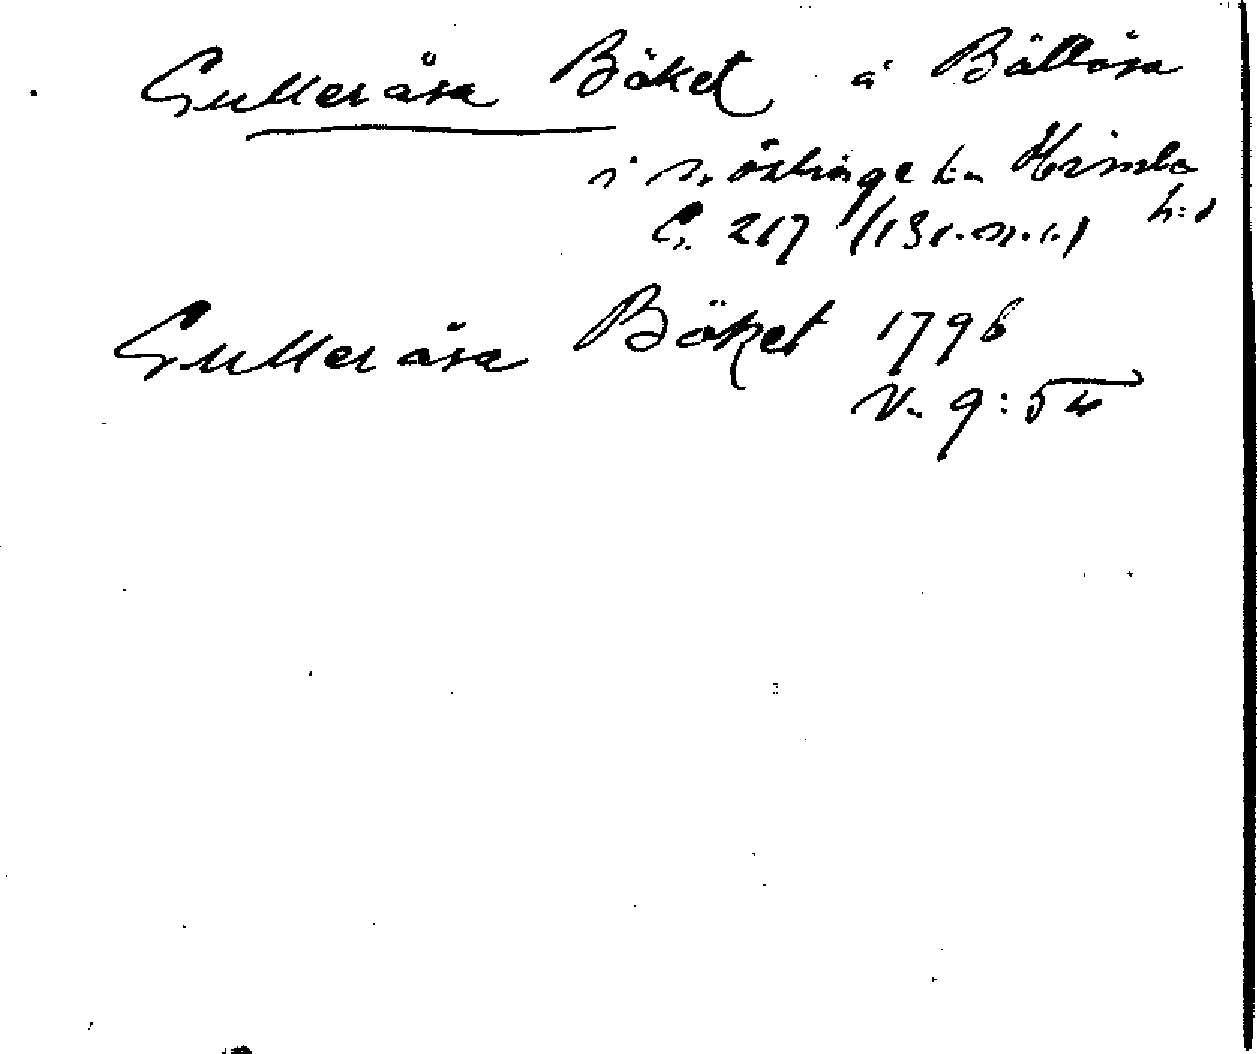 Gulleråsa Böket å Bällåsa
i N. Östringe k:n Himle
h:d
G. 217 (131.m.1.)
Gulleråsa Böket 1796
V. 9:54